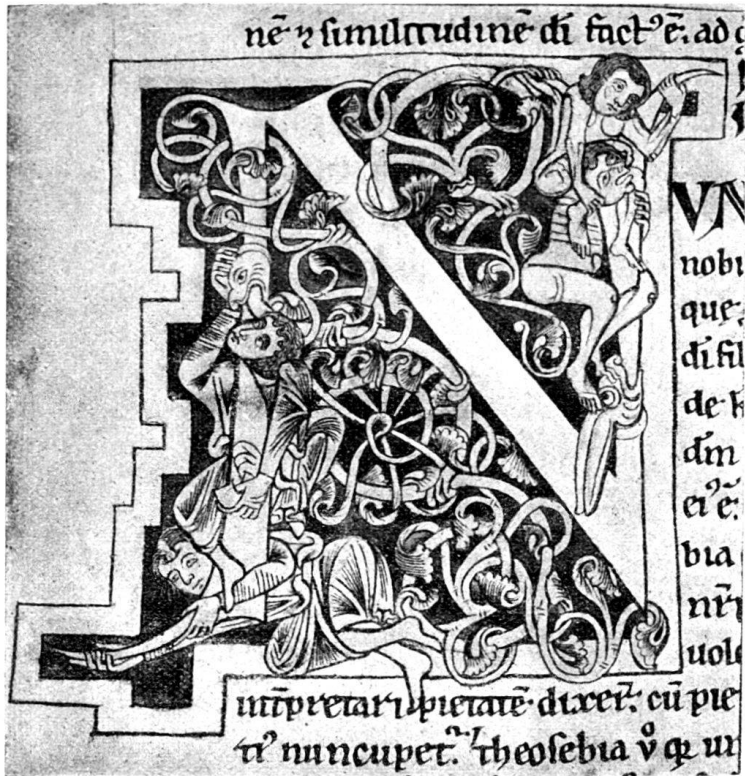 nē ⁊ similitudinē dī fact᾿ ē. ad
N
VN
nobi
que
dī fil
de
dm̄
ei᾿ ē:
bia
nr̄
uol
int̄pretari pietatē dixer̄. cū pie
nuncupet̄. theosebia